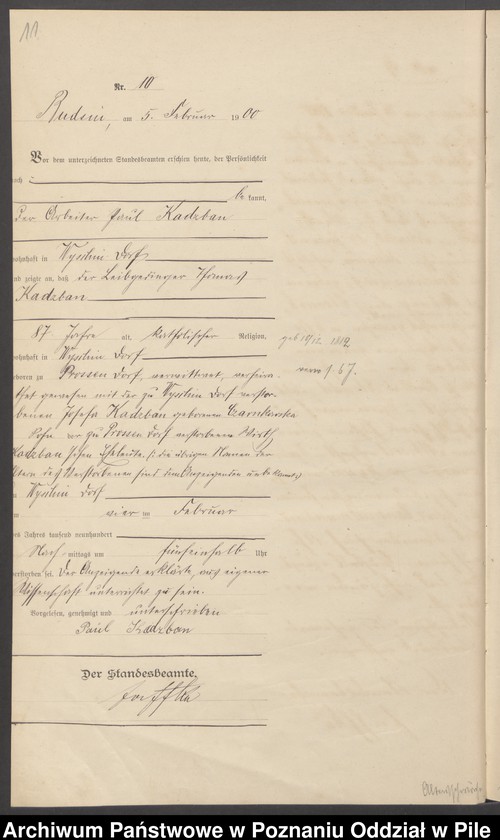 11
Nr. 10
Rudsin, am 5. Februar 1900
Vor dem unterzeichneten Standesbeamten erschien heute, der Persönlichkeit
nach
be kannt,
der Arbeiter Paul Kadzban
wohnhaft in Wysskin Dorf
und zeigte an, daß der Leibgedinger Thomas
Kadzban
87 Jahre alt, katholischer Religion,
wohnhaft in Dorf
geboren zu Prossen Dorf, verwittwet, verheira-
thet gewesen mit der zu Dorf verstor-
benen Josefa Kadzban geborenen Czarnkowska
Sohn der zu Prossen Dorf verstorbenen Wirth
Kadzban schen Eheleute. die übrigen Namen der
Eltern des Verstorbenen sind dem Anzeigenden unbekannt
Dorf
vier ten Februar
des Jahres tausend neunhundert
Nach mittags um fünfeinhalb Uhr
verstorben sei. Der Anzeigende erklärte, aus eigener
Wissenschaft unterrichtet zu sein.
Vorgelesen, genehmigt und unterschrieben
Paul Kadzban
Der Standesbeamte.
geb 19/12. 1812.
Archiwum Państwowe w Poznaniu Oddział w Pile